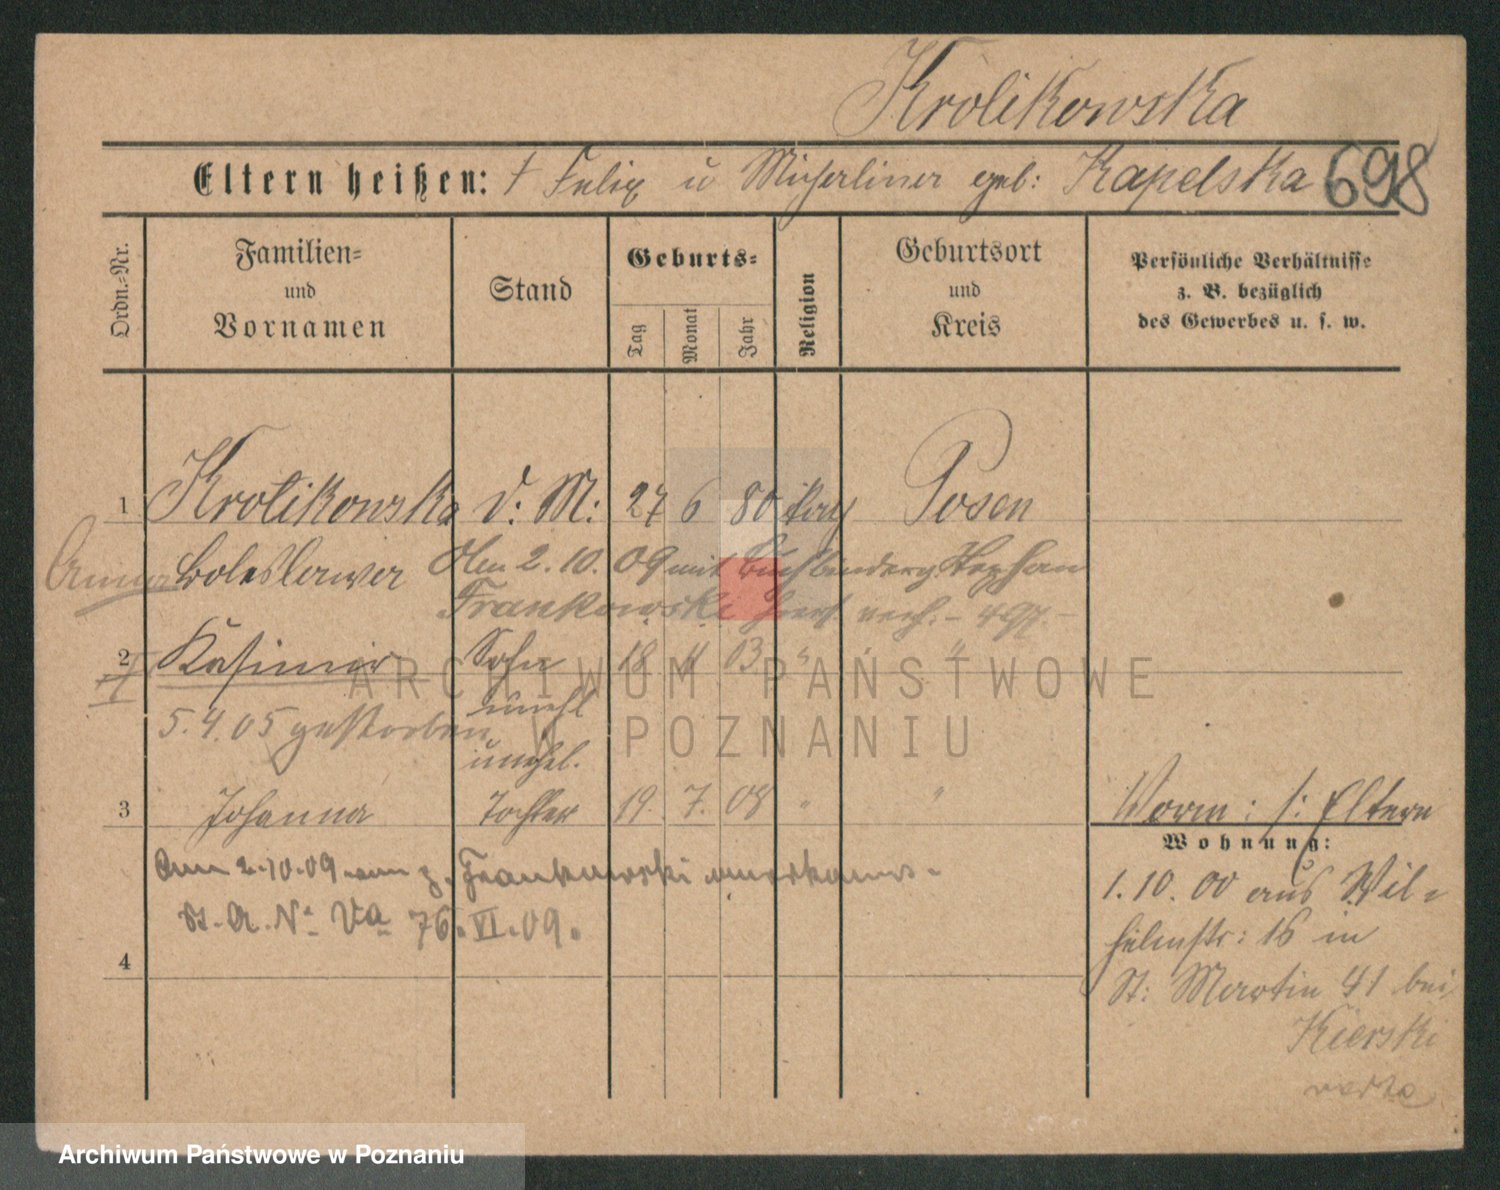 Krolikowska
Eltern heißen: † Felix u Michalina geb: Kapelska 698
Ordn.-Nr.
Familien- und Vornamen
Stand
Geburts-
Tag
Monat
Jahr
Religion
Geburtsort und Kreis
Persönliche Verhältnisse
z. B. bezüglich
des Gewerbes u. s. w.
1 Krolikowska d. M: 27 6 80 Posen
Anna Boleslawa Am 2.10.09 mit Buchbinder Stephan
Frankowski verh. - 497 -
2 Kasimir Sohn 18 4 03 " "
unehl
5.4.05 gestorben
unehel.
3 Johanna Tochter 19. 7. 08 " "
Vorm: s: Eltern
Wohnung:
Am 2.10.09 von z. Frankowski anerkannt.
St. A. No Va 76. VI. 09.
4
1.10.00 aus Wil-
helmstr: 16 in
St: Martin 41 bei
Kierski
ARCHIWUM PAŃSTWOWE
W POZNANIU
Archiwum Państwowe w Poznaniu